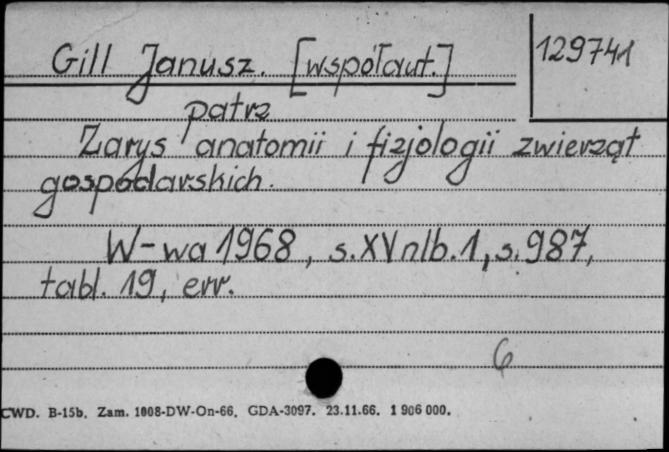 Gill Janusz. [współaut.]
129741
patrz
Zarys anatomii i fizjologii zwierząt
gospodarskich.
W-wa 1968, s. XV nlb. 1, s. 987,
tabl. 19, err.
6
CWD. B-15b. Zam. 1008-DW-On-66. GDA-3097. 23.11.66. 1 906 000.